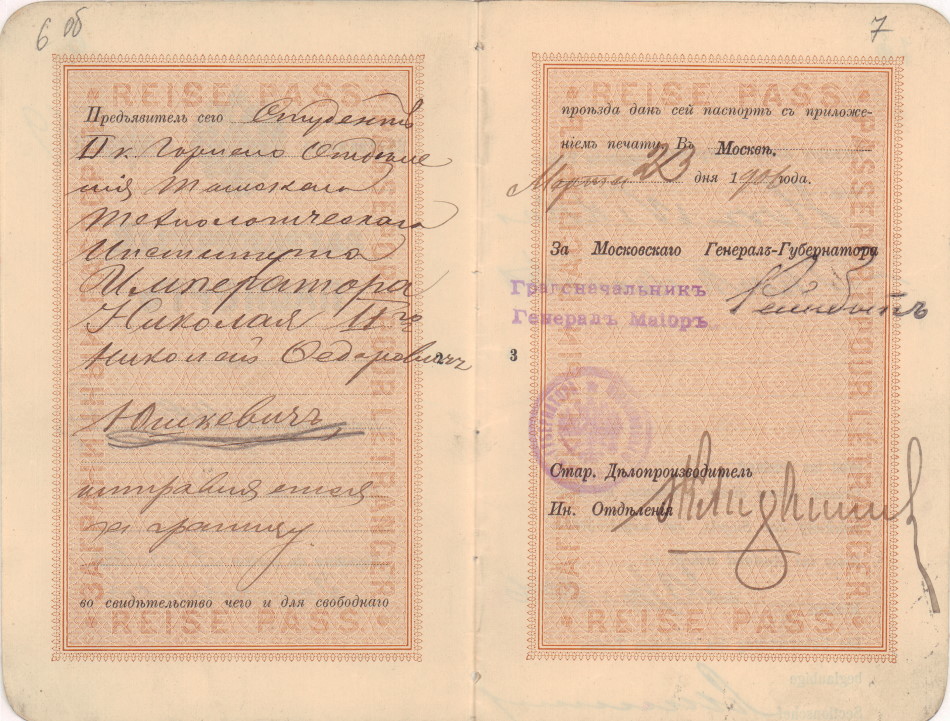 6 об
• REISE PASS. •
ЗАГРАНИЧНЫЙ ПАСПОРТЪ
PASSEPORT POUR L'ÉTRANGER
Предъявитель сего Студентъ
II к. Горнаго Отдѣле
нія Томскаго
Технологическаго
Института
Императора
Николая IIго
Николай Федоровичъ
Юшкевичъ
отправляется
за границу.
во свидѣтельство чего и для свободнаго
• REISE PASS. •
2
7
• REISE PASS. •
ЗАГРАНИЧНЫЙ ПАСПОРТЪ
PASSEPORT POUR L'ÉTRANGER
проѣзда данъ сей паспортъ съ приложе-
ніемъ печати. Въ Москвѣ.
Марта 23 дня 1906 года.
За Московскаго Генералъ-Губернатора
Градоначальникъ
Генералъ Маіоръ
Рейнботъ
3
Стар. Дѣлопроизводитель
Ин. Отдѣленія
• REISE PASS. •